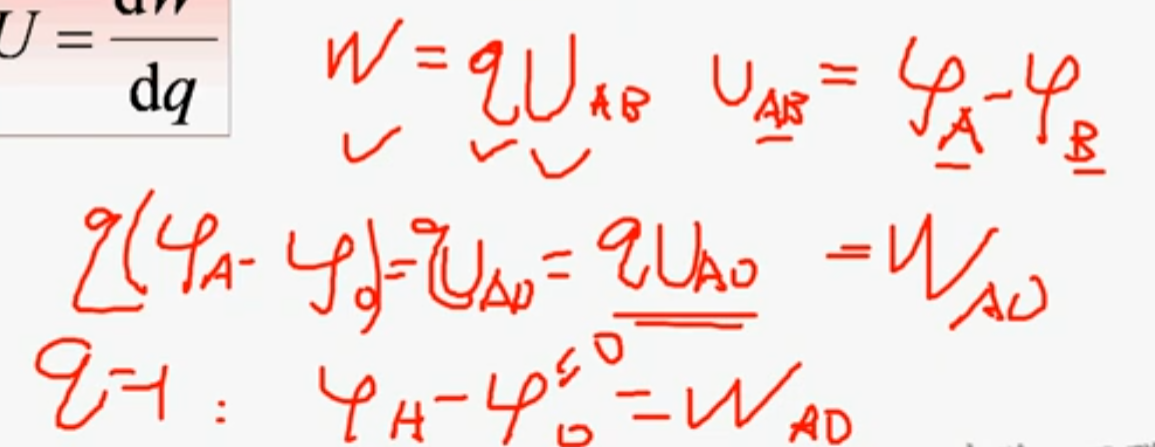 U = dW/dq
W = qU_AB U_AB = φ_A - φ_B
q(φ_A - φ_0) = qU_A0 = qU_A0 = W_A0
q=1 : φ_A - φ_0 = 0 = W_A0